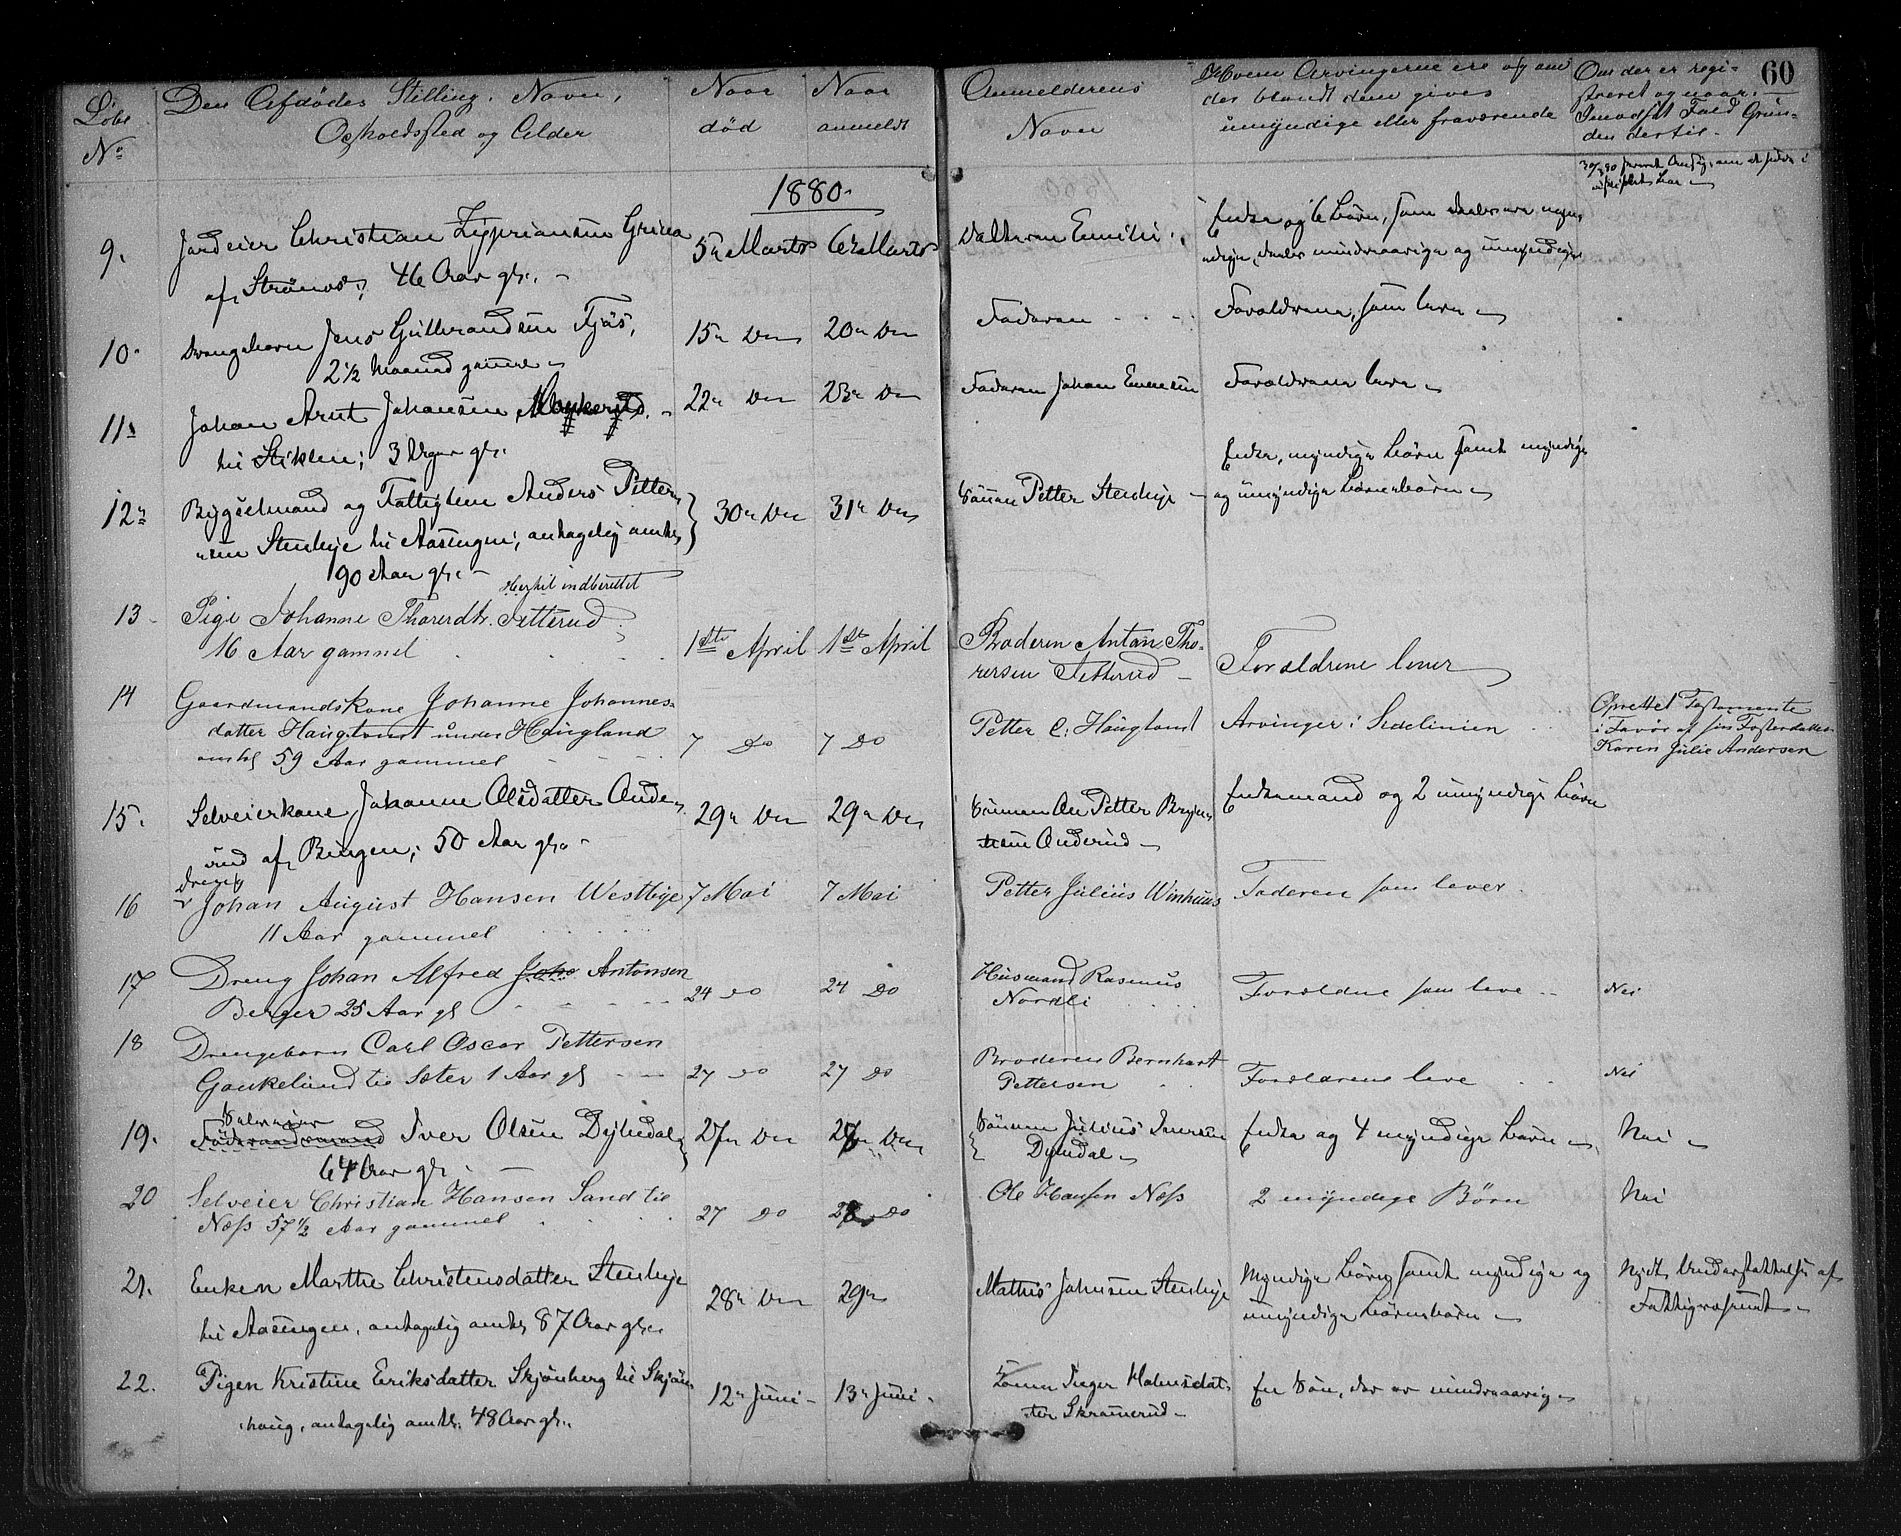 60
Løbe No
Den Afdødes Stilling, Navn,
Opholdssted og Alder
Naar
død
Naar
anmeldt
Anmelderens
Navn
Hvem Arvingerne ere og om
der blandt dem gives
umyndige eller fraværende
Om der er regi-
streret og naar.
I modsat Fald Grun-
den dertil.
1880.
9. Jordeier Christian Zypriansen Grina
af Strømsø, 46 Aar gl. 5te Marts 6te Marts Datteren Emilie
Enke og 6 Børn, som deels ere myn-
dige, deels mindreaarige og umyndige
10. Drengebarn Jens Gulbrandsen
2½ Maaned gammel 15de Do 20de Do Faderen Forældrene, som leve
11. Johan Arnt Johansen
til Stiklen; 3 Uger gl. 22de Do 23de Do Faderen Johan Forældrene leve
12. Bygselmand og Fattiglem Anders Petter-
sen Stenhye til Aasengen, antagelig omtr.
90 Aar gl. 30te Do 31te Do Sønnen Petter Stenhye
Enke, myndige Børn samt myndige
og umyndige Børnebørn
Hertil indberettet
13 Pige Johanne Thorerdtr. Tetterud
16 Aar gammel 1ste April 1ste April Broderen Anton Tho-
rersen Tetterud Forældrene lever
14 Gaardmandskone Johanne Johannes-
datter Haugland under Haugland
omtr 59 Aar gammel 7 Do 7 Do Petter C. Haugland Arvinger i Sidelinien
Oprettet Testamente
i Favør af sin Fosterdatter
Karen Julie Andersen
15. Selveierkone Johanne Olsdatter Ande-
rud af Bingen; 50 Aar gl. 29de Do 29de Do Sønnen Petter
Anderud Enkemand og 2 umyndige Børn
16 Dreng
Johan August Hansen Westbye
11 Aar gammel 7 Mai 7 Mai Petter Julius Winhuus Faderen som lever
17 Dreng Johan Alfred Joha Antonsen
Berger 25 Aar gl 24 Do 24 Do Husmand Rasmus
Nordli Forældrene som leve Nei
18 Drengebarn Carl Oscar Pettersen
Gaukelund til Sæter 1 Aar gl 27 Do 27 Do Broderen Bernhart
Pettersen Forældrene leve Nei
19. Selveier
Føderaadsmand Iver Olsen Dyhrdal
64 Aar gl. 27de Do 28de Do Sønnen Julius Iversen
Dyhrdal Enke og 4 myndige Børn Nei
20 Selveier Christian Hansen Sand til
Næss 57½ Aar gammel 27 Do 28 Do Ole Hansen Næss 2 myndige Børn Nei
21. Enken Marthe Christensdatter Stenhye
til Aasengen, antagelig omtr. 87 Aar gl. 28de Do 29de Mathis Johnsen Stenhye
Myndige Børn samt myndige og
umyndige Børnebørn
Nydt Understøttelse af
Fattigvæsenet
22. Pigen Kristine Eriksdatter Skjønberg til Skjøn-
haug, antagelig omtr. 48 Aar gl. 12te Juni 13de Juni Inger
Skramrud En Søn, der er mindreaarig